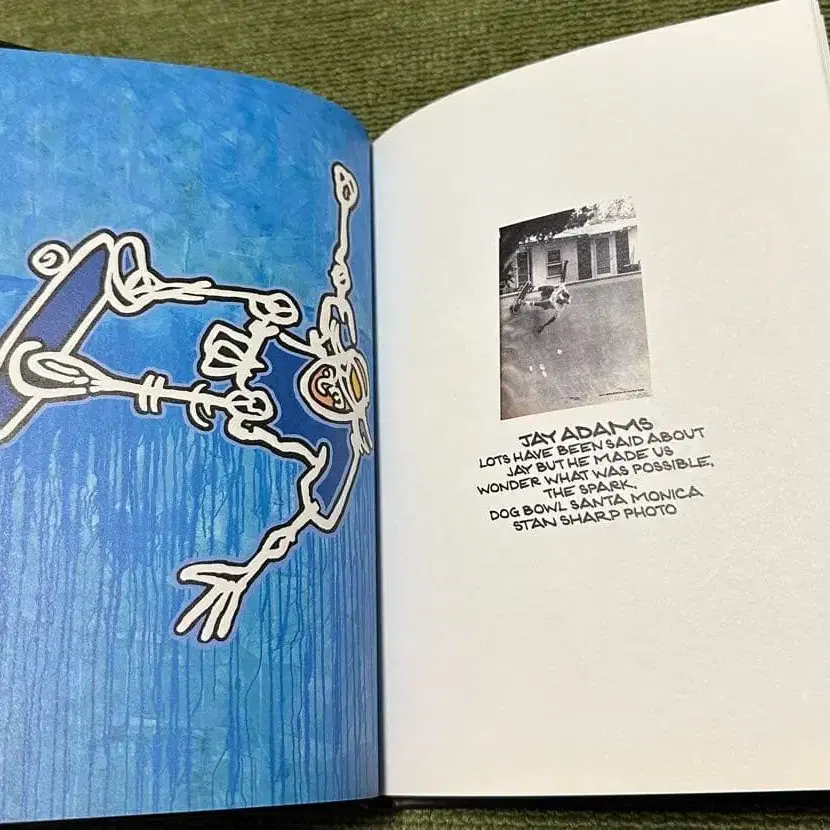 JAY ADAMS
LOTS HAVE BEEN SAID ABOUT
JAY BUT HE MADE US
WONDER WHAT WAS POSSIBLE,
THE SPARK.
DOG BOWL SANTA MONICA
STAN SHARP PHOTO